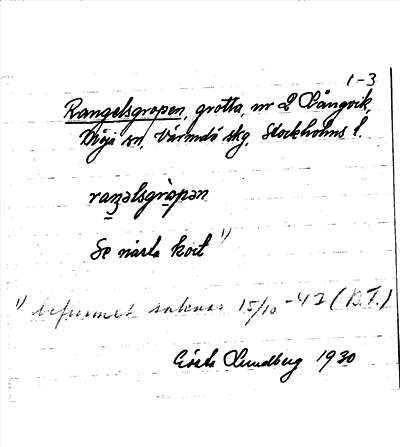 1-3
Rangelsgropen, grotta, nr 2 Långvik,
Möja sn, Värmdö skg, Stockholms l.
raŋəlsgròpən
Se nästa kort 1)
1) befunnet saknas 15/10 -42 (D.T.)
Gösta Lundberg 1930